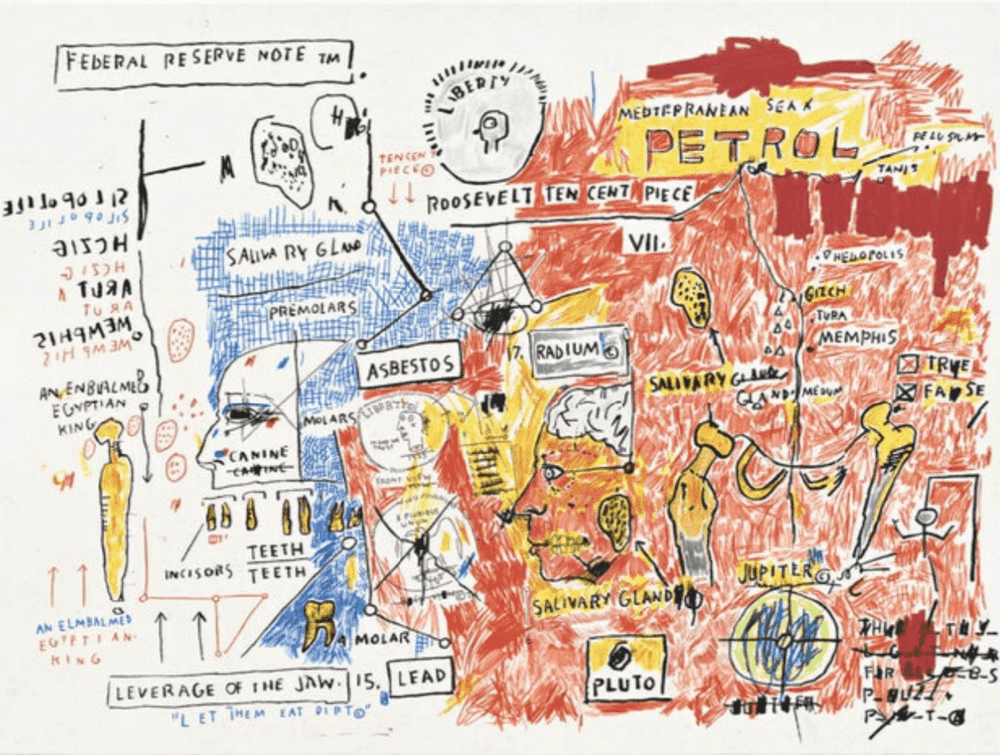 FEDERAL RESERVE NOTE TM.
LIBERTY
TEN CENT
PIECE©
ROOSEVELT TEN CENT PIECE
MEDITERRANEAN SEA
PETROL
PELUSIUM
TANIS
VII.
HELIOPOLIS
GIZCH
TURA
MEMPHIS
TRUE
FALSE
MEMPHIS
MEMPHIS
SALIVARY GLAND
PREMOLARS
ASBESTOS
17. RADIUM©
MOLARS
CANINE
CANINE
LIBERTY
FRONT VIEW
E PLURIBUS
UNUM
SALIVARY GLAND
GLAND MEDIUM
AN ENBUALMED
EGYPTIAN
KING
TEETH
TEETH
INCISORS
AN ELMBALMED
EGYPTIAN
KING
A MOLAR
LEVERAGE OF THE JAW. 15. LEAD
"LET THEM EAT DIRT©"
SALIVARY GLAND
PLUTO
JUPITER©
JUPITER
P-UZZ